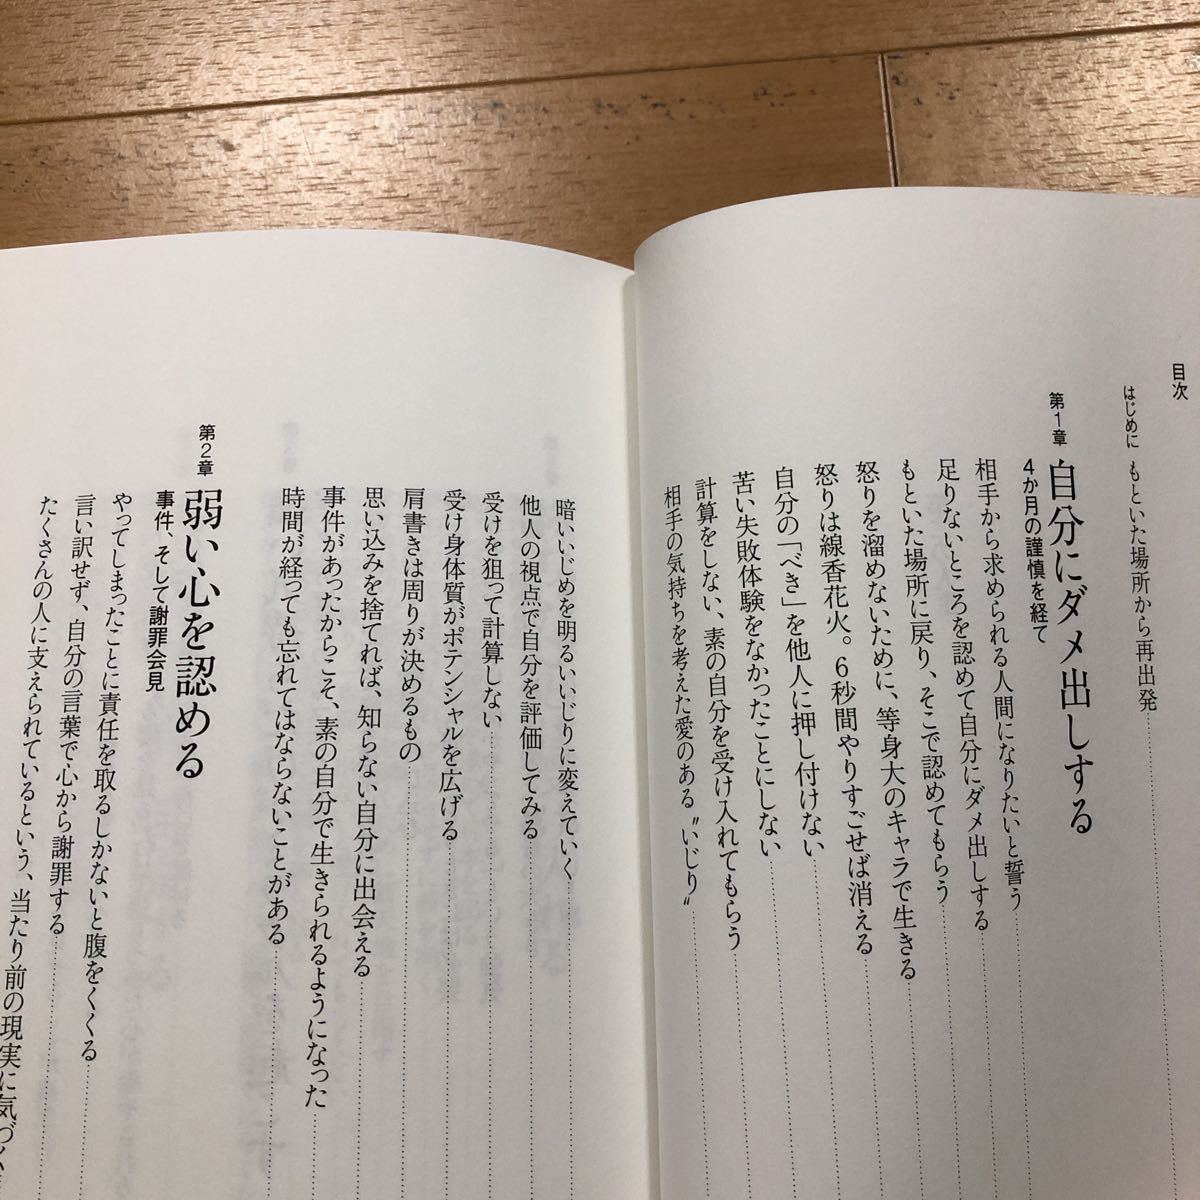 目次
はじめに もといた場所から再出発
第1章 自分にダメ出しする
4か月の謹慎を経て
相手から求められる人間になりたいと誓う
足りないところを認めて自分にダメ出しする
もといた場所に戻り、そこで認めてもらう
怒りを溜めないために、等身大のキャラで生きる
怒りは線香花火。6秒間やりすごせば消える
自分の「べき」を他人に押し付けない
苦い失敗体験をなかったことにしない
計算をしない、素の自分を受け入れてもらう
相手の気持ちを考えた愛のある〝いじり〟
暗いいじめを明るいいじりに変えていく
他人の視点で自分を評価してみる
受けを狙って計算しない
受け身体質がポテンシャルを広げる
肩書きは周りが決めるもの
思い込みを捨てれば、知らない自分に出会える
事件があったからこそ、素の自分で生きられるようになった
時間が経っても忘れてはならないことがある
第2章 弱い心を認める
事件、そして謝罪会見
やってしまったことに責任を取るしかないと腹をくくる
言い訳せず、自分の言葉で心から謝罪する
たくさんの人に支えられているという、当たり前の現実に気づく